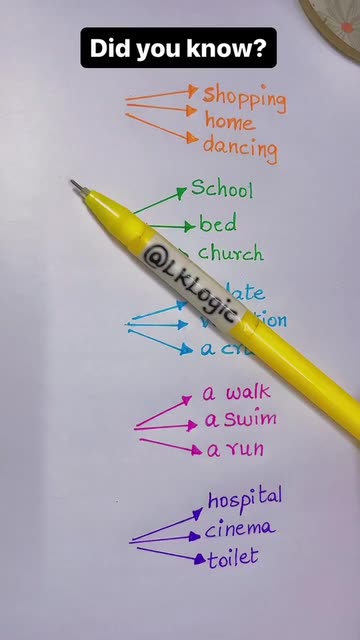 Did you know?
shopping
home
dancing
School
bed
church
@LKLogic
a
a walk
a swim
a run
hospital
cinema
toilet